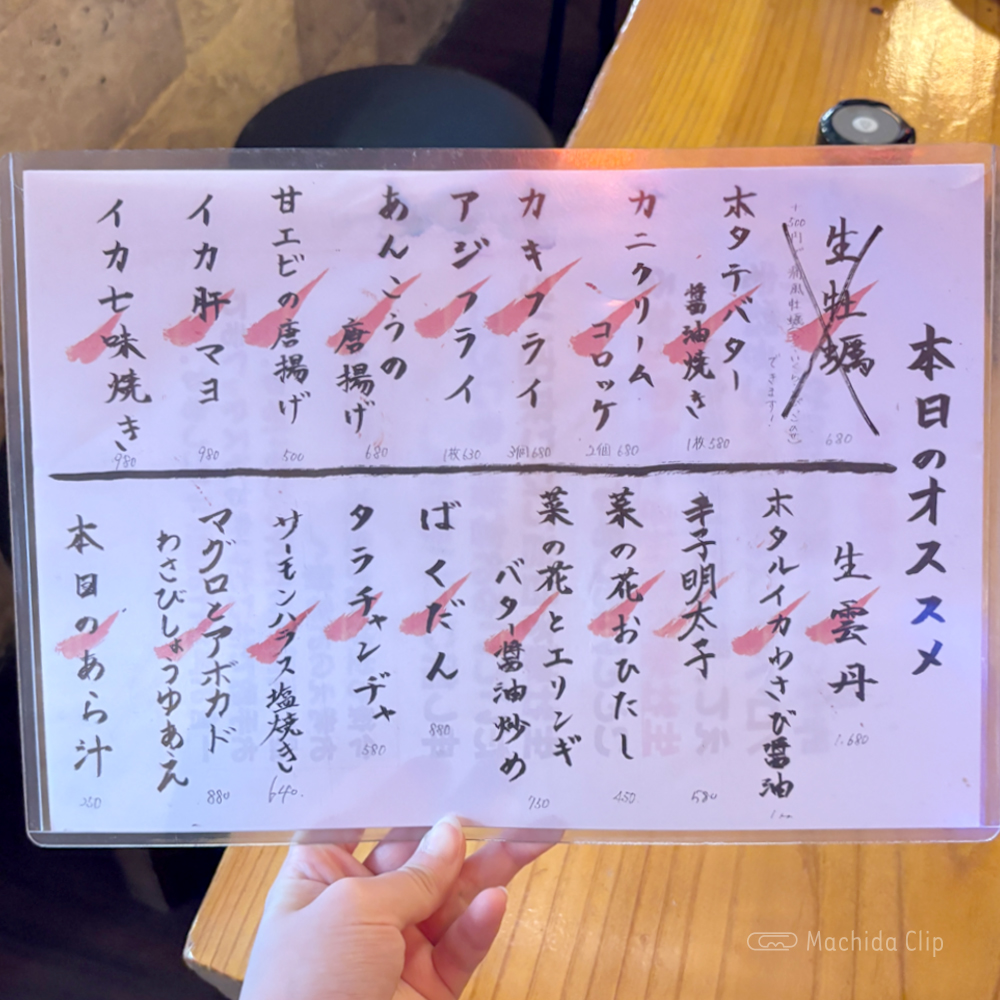 本日のオススメ
生牡蠣
680
ホタテバター
醤油焼き
1枚 580
カニクリーム
コロッケ
2個 680
カキフライ
3個 680
アジフライ
1枚 630
あんこうの
唐揚げ
680
甘エビの唐揚げ
500
イカ肝マヨ
980
イカ七味焼き
980
生雲丹
1.680
ホタルイカわさび醤油
辛子明太子
580
菜の花おひたし
450
菜の花とエリンギ
バター醤油炒め
750
ばくだん
880
タラチャンヂャ
580
サーモンハラス塩焼き
640.
マグロとアボカド
わさびしょうゆあえ
880
本日のあら汁
250
Machida Clip